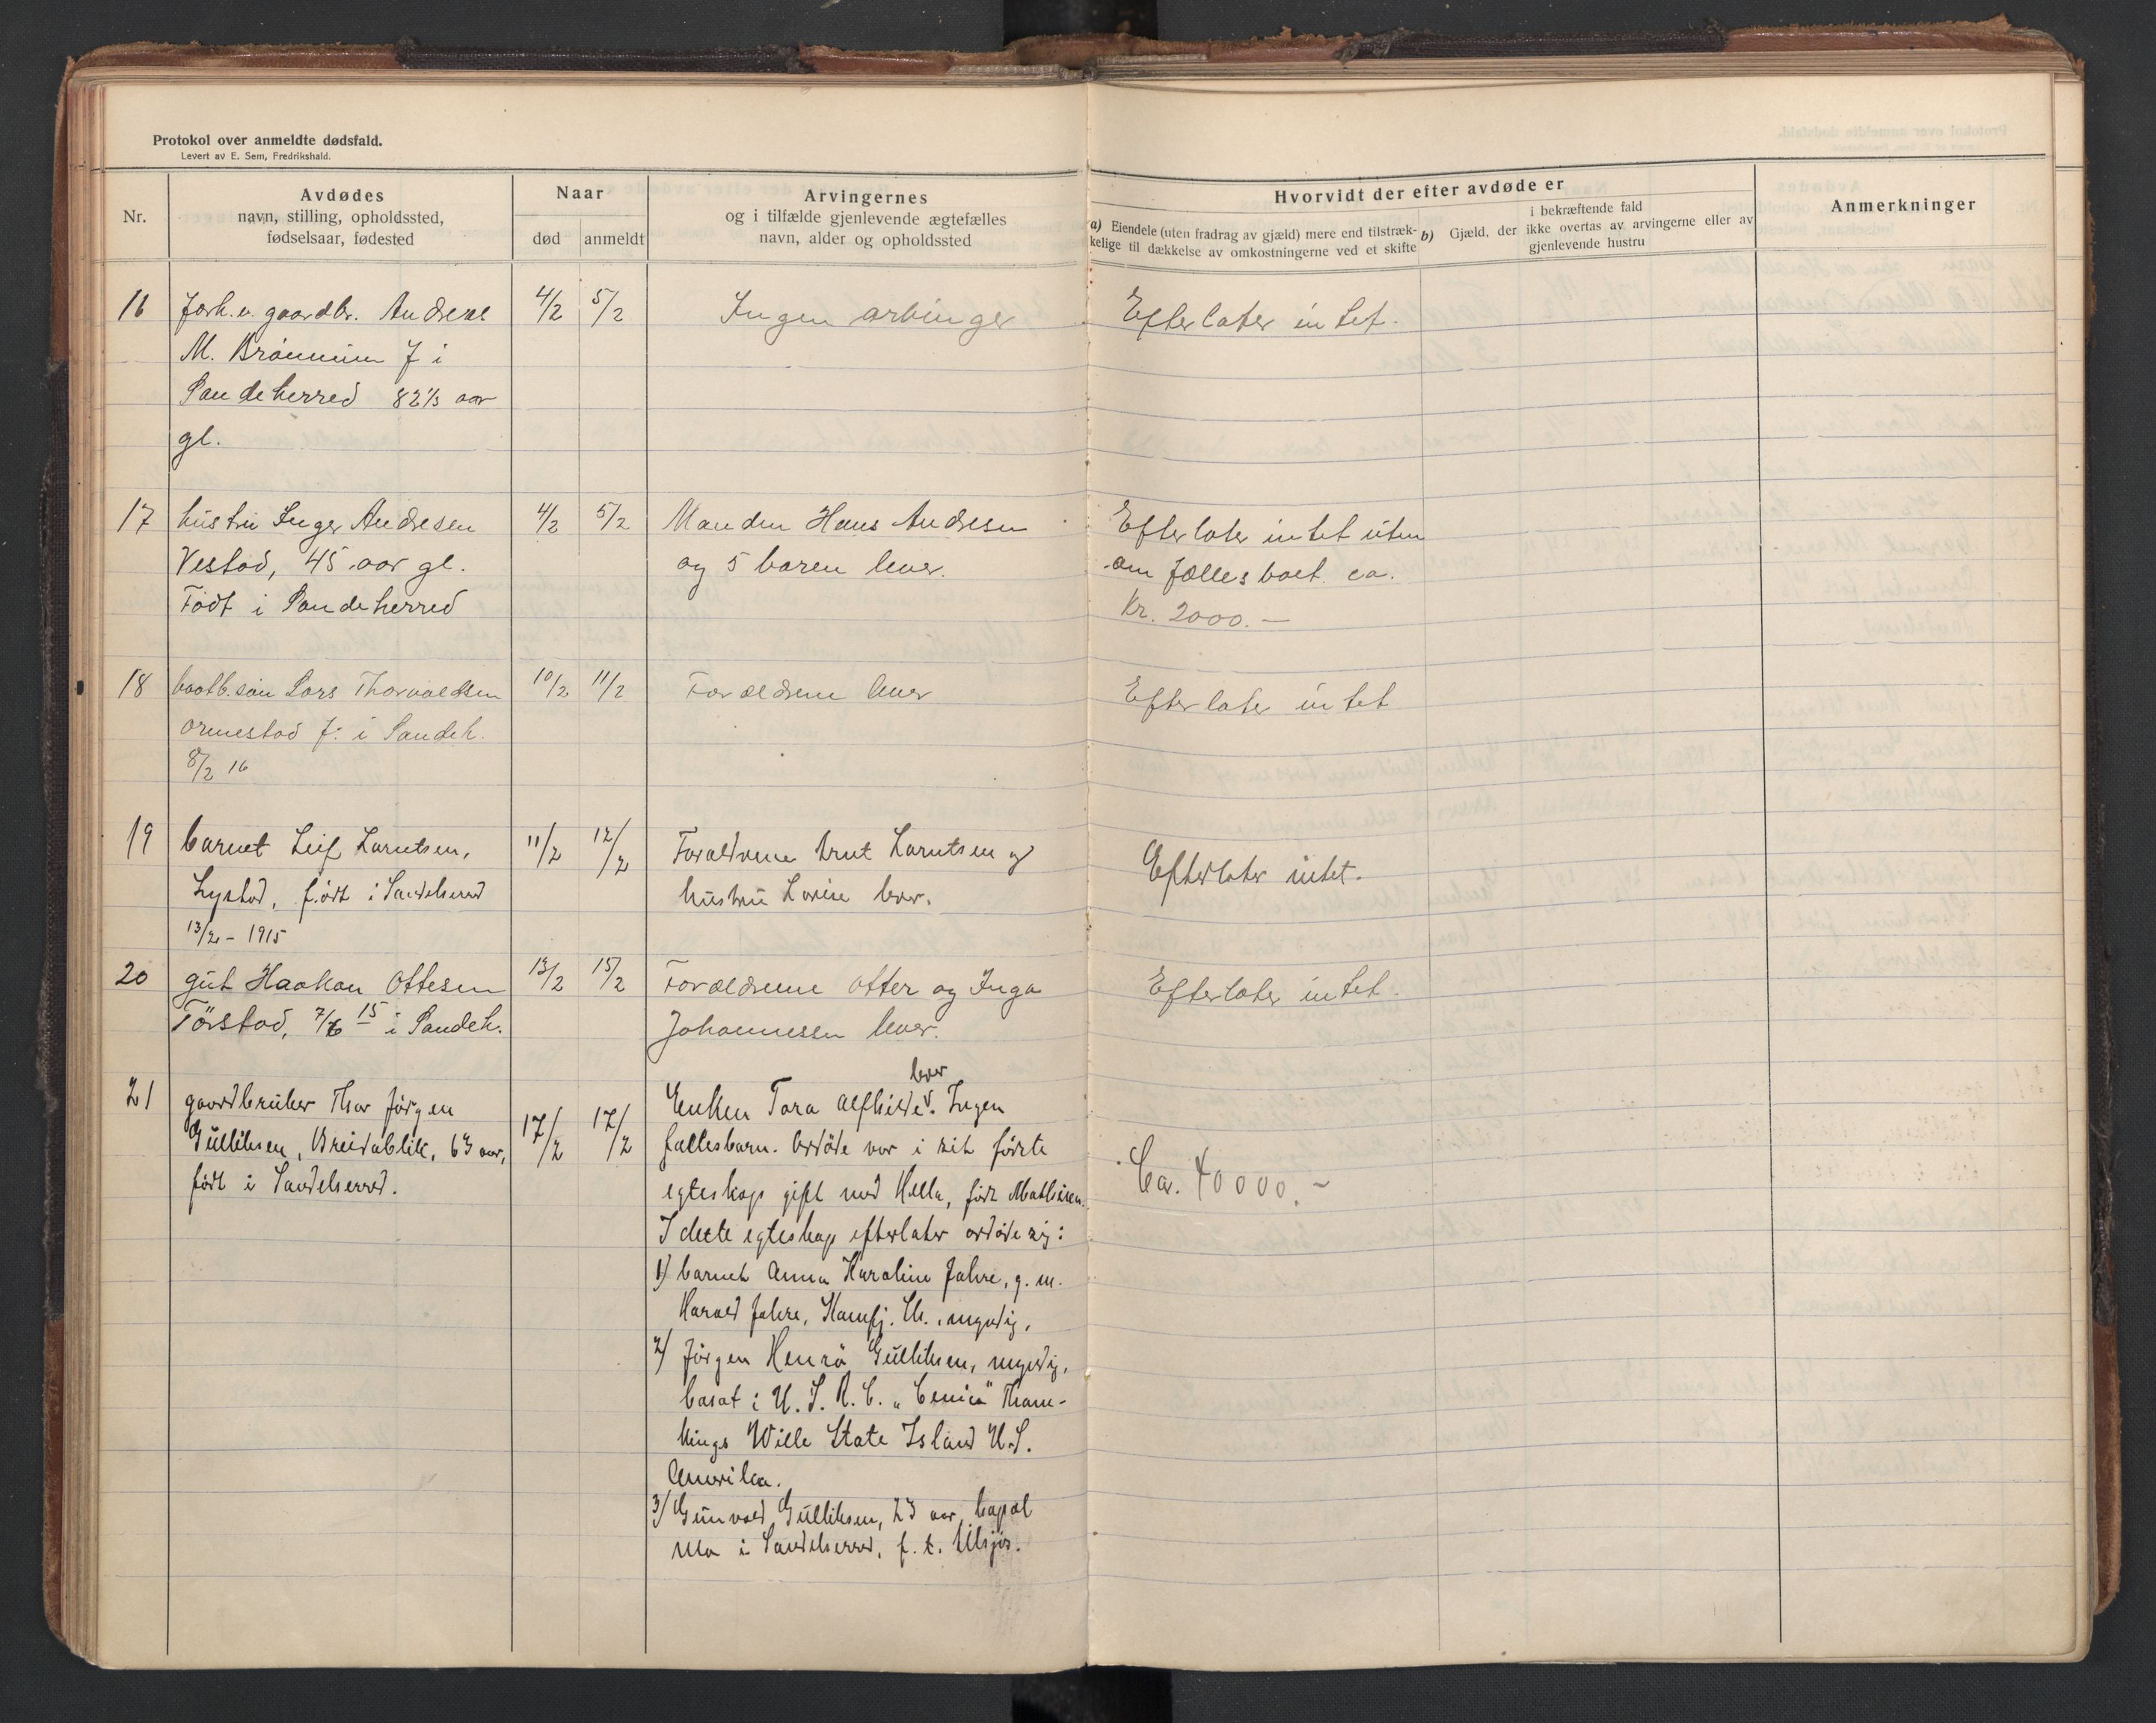 Protokol over anmeldte dødsfald.
Levert av E. Sem, Fredrikshald.
Nr.
Avdødes
navn, stilling, opholdssted,
fødselsaar, fødested
Naar
død
anmeldt
Arvingernes
og i tilfælde gjenlevende ægtefælles
navn, alder og opholdssted
Hvorvidt der efter avdøde er
a) Eiendele (uten fradrag av gjæld) mere end tilstræk-
kelige til dækkelse av omkostningerne ved et skifte
b) Gjæld, der
i bekræftende fald
ikke overtas av arvingerne eller av
gjenlevende hustru
Anmerkninger
16 forh.v. gaardbr. Andreas 4/2 5/2 Ingen arvinger Efterlater intet.
M. Brönnum f i
Sandeherred 82 1/3 aar
gl.
17 hustru Inger Andresen 4/2 5/2 Manden Hans Andresen Efterlater intet uten
Vestad, 45 aar gl. og 5 baren lever. om fælles boet ca.
Födt i Sandeherred Kr. 2000.-
18 baatb.sön Lars Thorvaldsen 10/2 11/2 Forældrene lever Efterlater intet
Ormestad f: i Sandeh.
8/2 16
19 barnet Leif Larntsen, 11/2 12/2 Forældrene Knut Larntsen og Efterlater intet.
Lystad, födt i Sandeherred hustru Lovise lever.
13/2 - 1915
20 gut Haakon Ottesen 13/2 15/2 Forældrene Otter og Inga Efterlater intet.
Törstad, 7/6 15 i Sandeh. Johannessen lever.
21 gaardbruker Thor Jörgen 17/2 17/2 Enken Tora Alfhilde lever. Ingen
Gulliksen, Breidablik, 63 aar, fællesbarn. Avdöde var i sit förste Ca. 40000.-
födt i Sandeherred. egteskap gift med Hella, födt Mathisen.
I dette egteskap efterlater avdöde sig:
1) barnet Anna Karoline Jahre, g. m.
Harald Jahre, Hamfj. Ch., myndig.
2) Jörgen Henrö Gulliksen, myndig,
bosat i U. S. A. C. "
Kings Wille State Island U.S.
Amerika.
3) Gunvald Gulliksen, 23 aar, bopæl
Mo i Sandeherred, f. t. tilsjös.